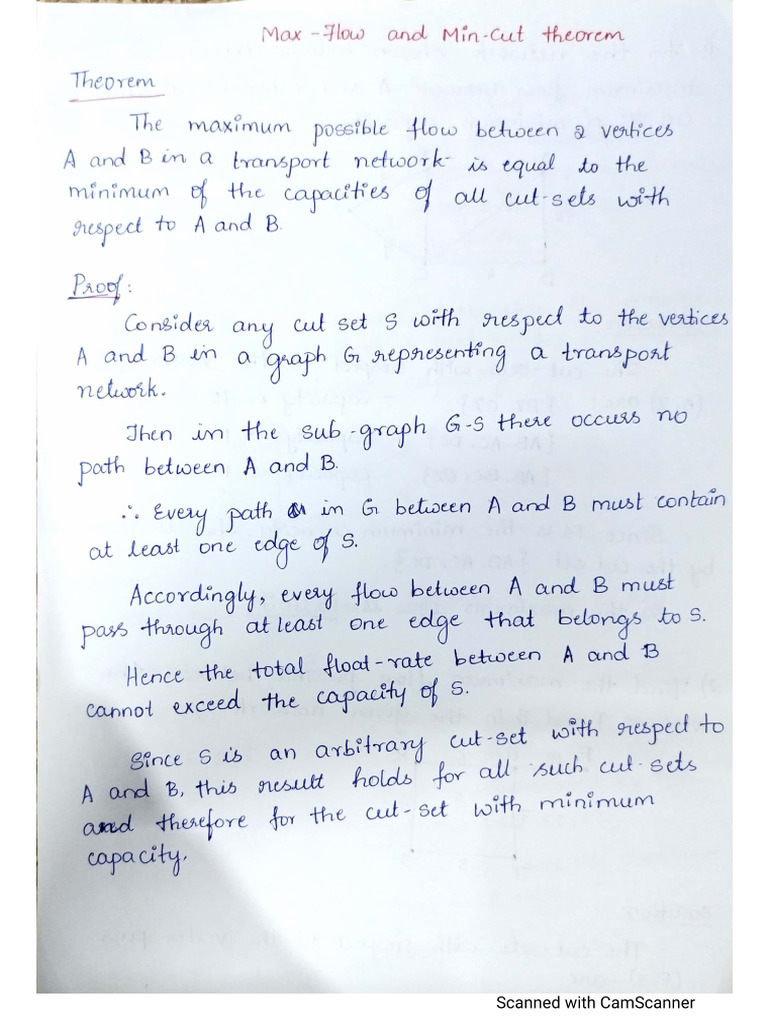 Max-Flow and Min-Cut theorem
Theorem
The maximum possible flow between 2 vertices
A and B in a transport network is equal to the
minimum of the capacities of all cut-sets with
respect to A and B.
Proof:
Consider any cut set S with respect to the vertices
A and B in a graph G representing a transport
network.
Then in the sub-graph G-S there occurs no
path between A and B.
∴ Every path in G between A and B must contain
at least one edge of S.
Accordingly, every flow between A and B must
pass through at least one edge that belongs to S.
Hence the total float-rate between A and B
cannot exceed the capacity of S.
Since S is an arbitrary cut-set with respect to
A and B, this result holds for all such cut-sets
and therefore for the cut-set with minimum
capacity.
Scanned with CamScanner